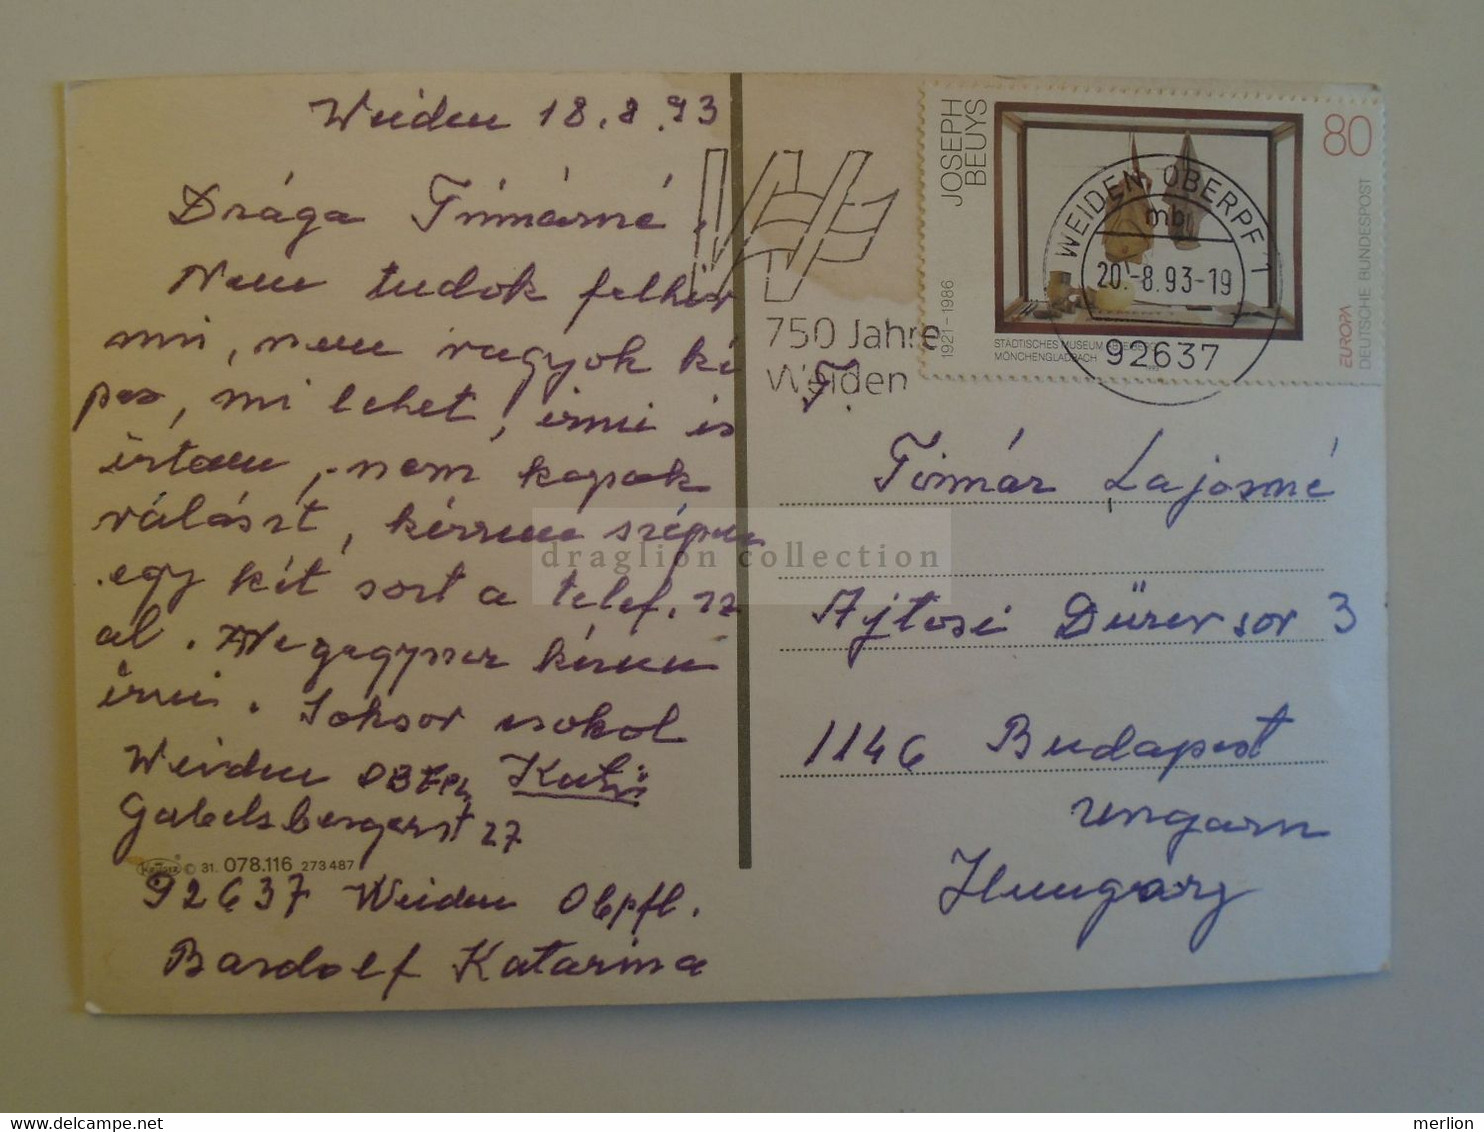 Weiden 18.8.93
Drága Tímárné,
Nem tudok felhív
mi, nem vagyok ké
pes, mi lehet, írni is
írtam, nem kapok
választ, kérném szépen
egy két sort a telef. sz
al. Mégegyszer kérem
írni. Sokszor csokol
Weiden OBPfl. Kati
Gabelsbergerst 27
© 31. 078.116 273 487
92637 Weiden Obpfl.
Bardolf Katarina
750 Jahre
Weiden
JOSEPH
BEUYS
80
1921–1986
STÄDTISCHES MUSEUM ABTEIBERG
MÖNCHENGLADBACH
EUROPA
DEUTSCHE BUNDESPOST
WEIDEN, OBERPF 1
mb
20.-8.93-19
92637
T.
Tímár Lajosné
Ajtosi Dürer sor 3
1146 Budapest
Ungarn
Hungary
draglion collection
merlion